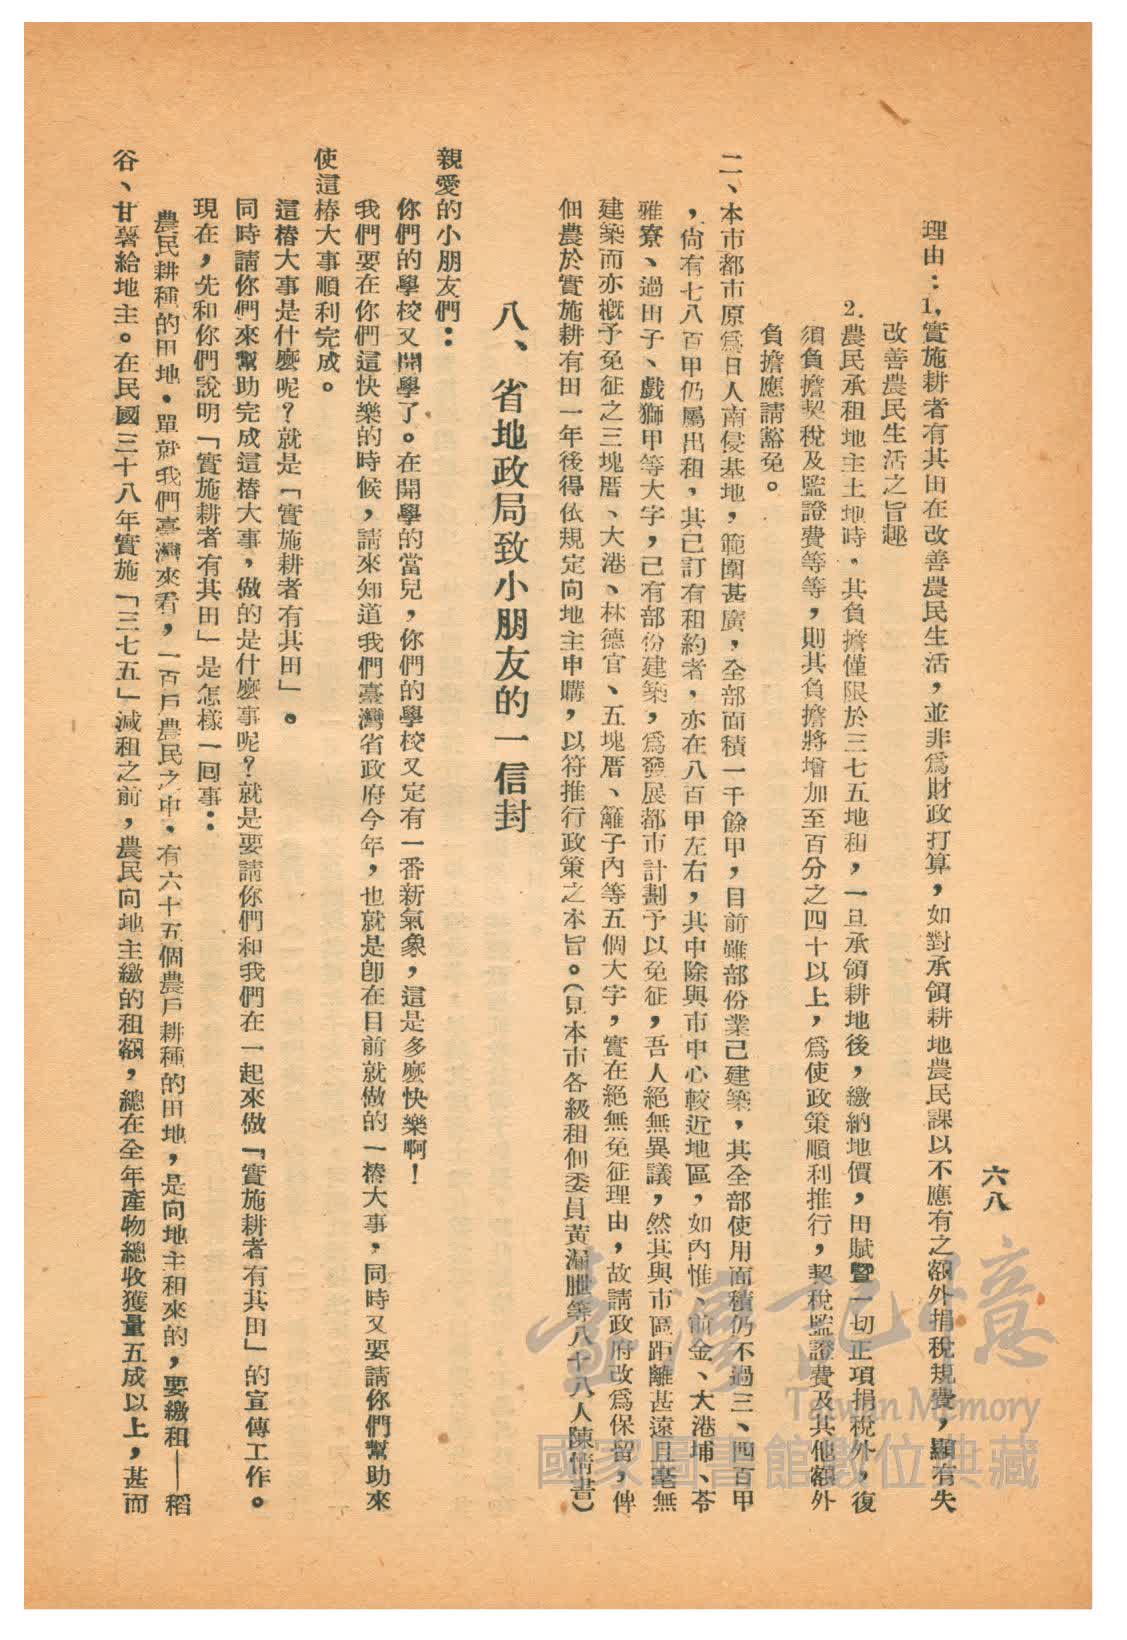 六八
理由：1.實施耕者有其田在改善農民生活，並非爲財政打算，如對承領耕地農民課以不應有之額外捐稅規費，顯有失
改善農民生活之旨趣
2.農民承租地主土地時，其負擔僅限於三七五地租，一旦承領耕地後，繳納地價，田賦暨一切正項捐稅外，復
須負擔契稅及監證費等等，則其負擔將增加至百分之四十以上，爲使政策順利推行，契稅監證費及其他額外
負擔應請豁免。
二、本市都市原爲日人南侵基地，範圍甚廣，全部面積一千餘甲，目前雖部份業已建築，其全部使用面積仍不過三、四百甲
，尙有七八百甲仍屬出租，其已訂有租約者，亦在八百甲左右，其中除與市中心較近地區，如內惟、前金、大港埔、苓
雅寮、過田子、戲獅甲等大字，已有部份建築，爲發展都市計劃予以免征，吾人絕無異議，然其與市區距離甚遠且毫無
建築而亦槪予免征之三塊厝、大港、林德官、五塊厝、籬子內等五個大字，實在絕無免征理由，故請政府改爲保留，俾
佃農於實施耕有田一年後得依規定向地主申購，以符推行政策之本旨。（見本市各級租佃委員黃漏脃等八十八人陳情書）
八、省地政局致小朋友的一信封
親愛的小朋友們：
你們的學校又開學了。在開學的當兒，你們的學校又定有一番新氣象，這是多麼快樂啊！
我們要在你們這快樂的時候，請來知道我們臺灣省政府今年，也就是卽在目前就做的一樁大事，同時又要請你們幫助來
使這樁大事順利完成。
這樁大事是什麼呢？就是「實施耕者有其田」。
同時請你們來幫助完成這樁大事，做的是什麼事呢？就是要請你們和我們在一起來做「實施耕者有其田」的宣傳工作。
現在，先和你們說明「實施耕者有其田」是怎樣一回事：
農民耕種的田地．單就我們臺灣來看，一百戶農民之中，有六十五個農戶耕種的田地，是向地主租來的，要繳租——稻
谷、甘薯給地主。在民國三十八年實施「三七五」減租之前，農民向地主繳的租額，總在全年產物總收獲量五成以上，甚而
臺灣記憶
Taiwan Memory
國家圖書館數位典藏